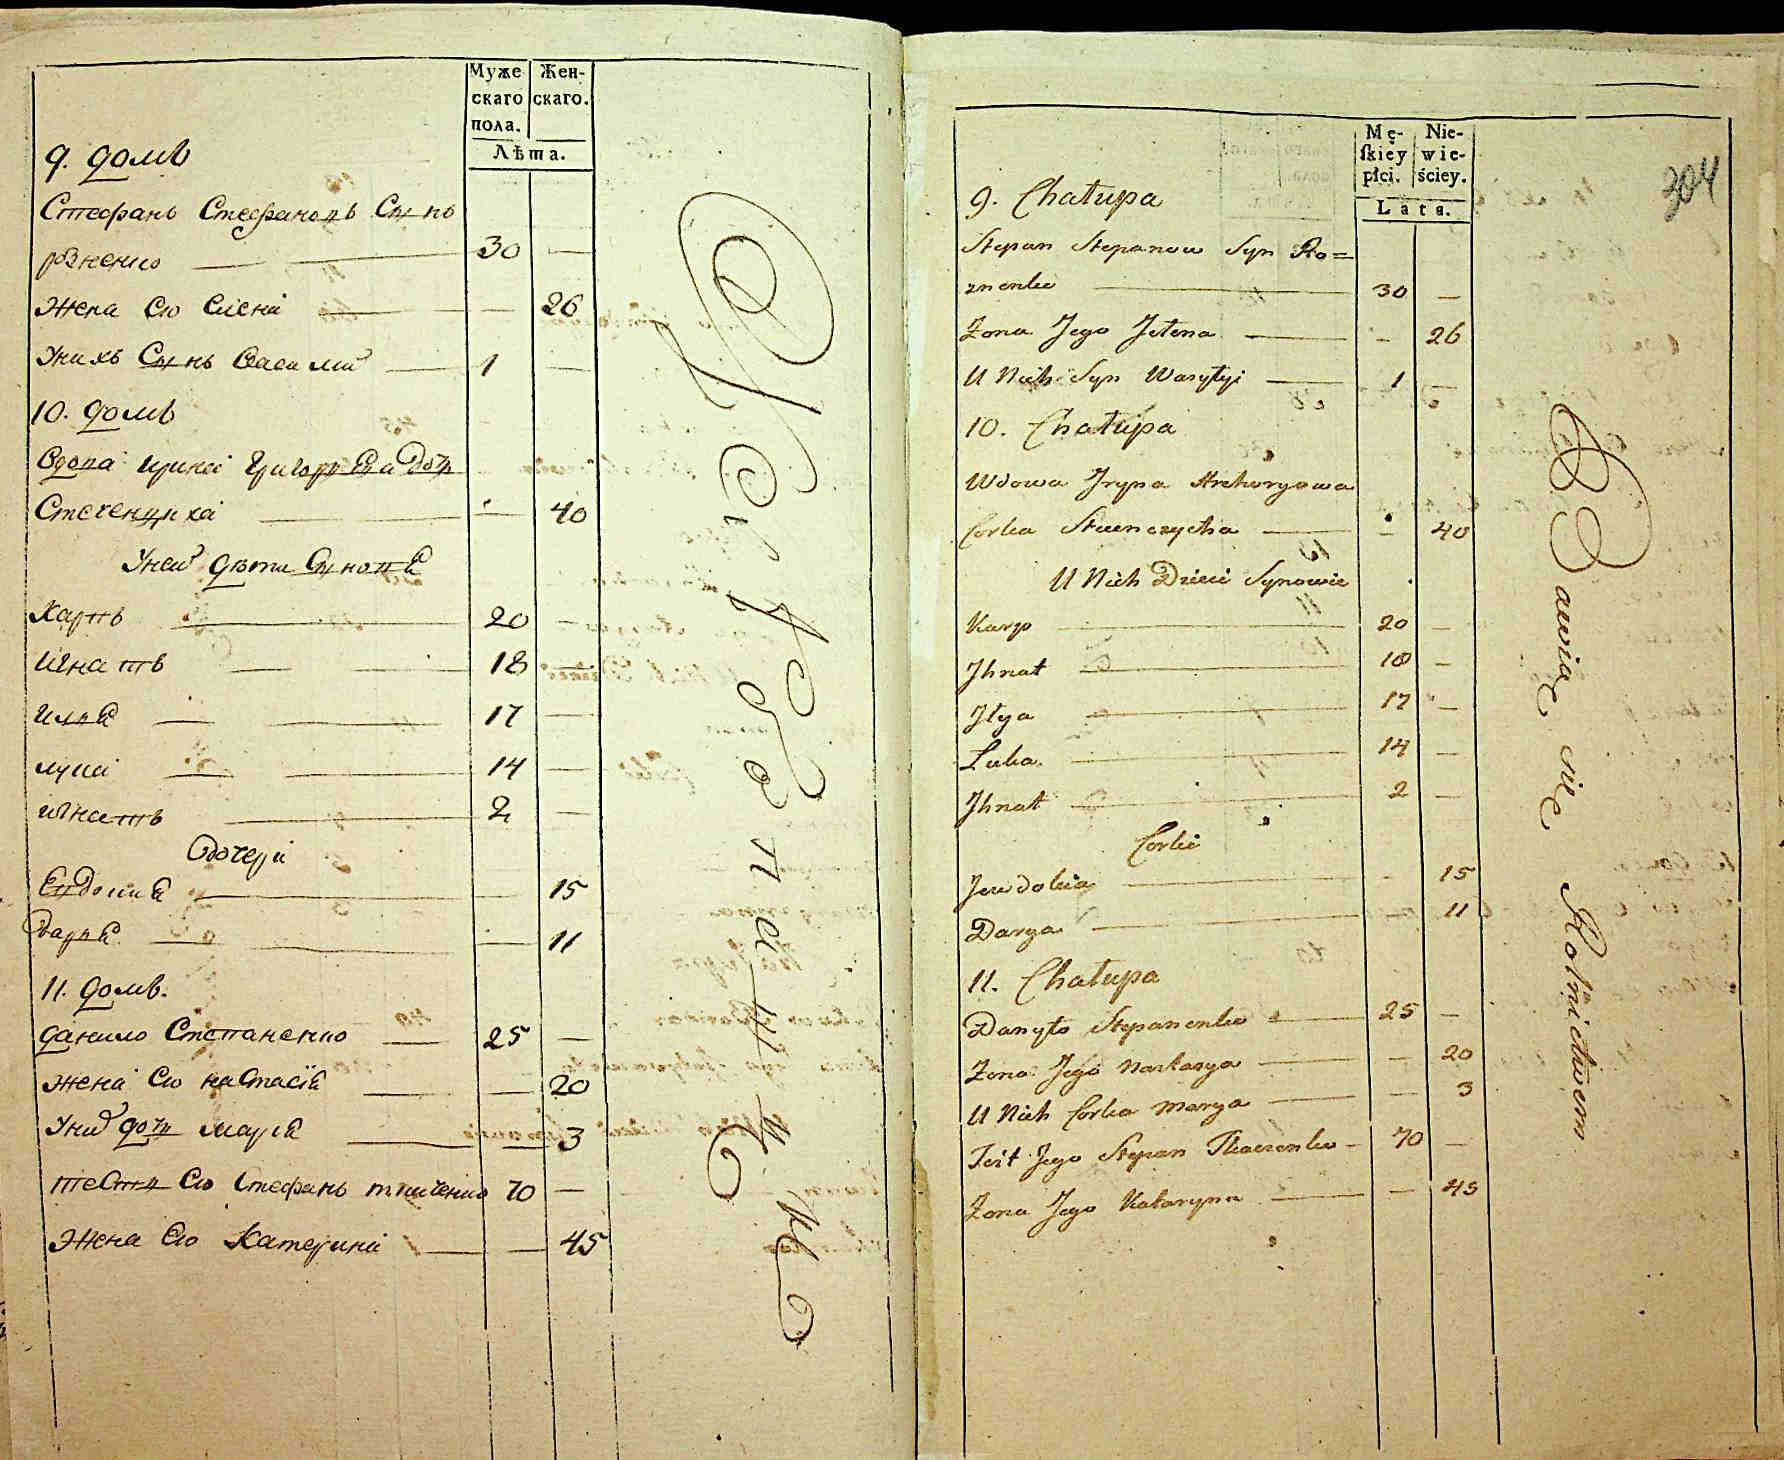 Муже Жен-
скаго скаго.
пола.
Лѣта.
9. домъ
Стефанъ Стефановъ Сынъ
розненко — 30 —
Жена Ею Елена — 26
Унихъ Сынъ Василий — 1 —
10. домъ
Вдова ирина Григорьева дочь
Стеченчиха — 40
Уней дѣти Сыновя
Карпъ — 20 —
игнатъ — 18 —
илья — 17 —
лука — 14 —
игнатъ — 2 —
дочери
Евдокия — 15
дарья — 11
11. домъ.
данило Степаненко — 25 —
жена Ею настасїя — 20
Уних дочь марїя — 3
тесть Ею Стефанъ ткаченко 70 —
Жена Ею Катерина — 45
Mę- Nie-
skiéy wie-
płci. ściey.
Lata.
304
9. Chałupa
Stepan Stepanow Syn Ro=
znenko — 30 —
Żona Jego Jełena — 26
U Nich Syn Wasyłyi — 1 —
10. Chałupa
Wdowa Jryna Hrehoryowa
Corka Steczenczycha — 40
U Nich Dzieci Synowie
Karp — 20 —
Jhnat — 18 —
Jłya — 17 —
Łuka — 14 —
Jhnat — 2 —
Corki
Jewdokia — 15
Darya — 11
11. Chałupa
Danyło Stepanenko — 25 —
Żona Jego Nastasya — 20
U Nich Corka Marya — 3
Teść Jego Stepan Tkaczenko — 70 —
Żona Jego Kataryna — 45
Bawią się Rolnictwem